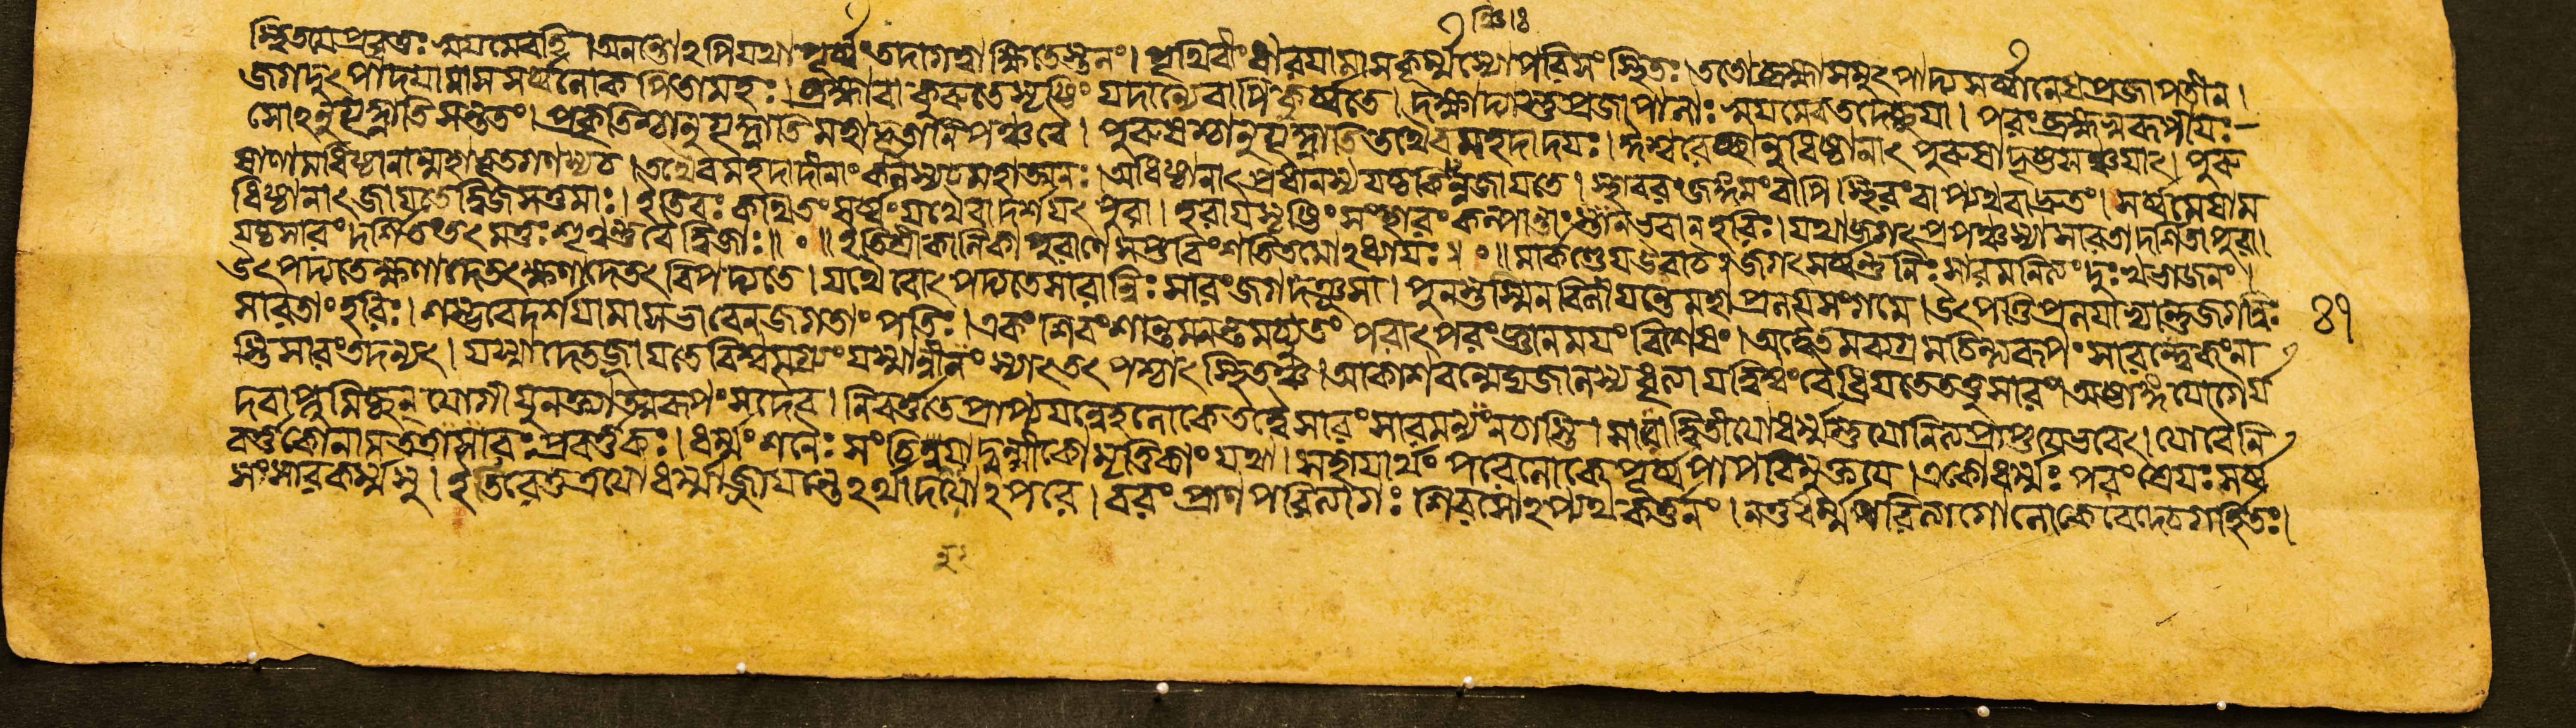 ঞ্চি।ঃ
স্থিতয়ে প্রবৃত্তঃ স্বয়মেব হি। অনন্তোঽপি যথা পূর্ব্বং তদাগত্বা ক্ষিতেস্তলং। পৃথিবীং ধারয়ামাস কূর্ম্মস্যোপরি সংস্থিতঃ। ততো ব্রহ্মা সমুৎপাদ্য সর্ব্বানেব প্রজাপতীন।
জগদুৎপাদয়ামাস সর্ব্বলোকপিতামহঃ। ব্রহ্মা বা কুরুতে সৃষ্টিং যদান্যে বাপি কুর্ব্বতে। দক্ষাদ্যাস্তু প্রজাপালাঃ স্বয়মেব তদেচ্ছয়া। পরং ব্রহ্মস্বরূপী যঃ
সোঽনুগৃহ্লাতি সন্ততং। প্রকৃতিশ্চানুগৃহ্লাতি মহাভূতানি পঞ্চ বৈ। পুরুষশ্চানুগৃহ্লাতি তথৈব মহদাদয়ঃ। ঈশ্বরেচ্ছানুধিষ্ঠানাৎ পুরুষাদৃষ্টসঞ্চয়াৎ। পুরু
ষাণামধিষ্ঠানান্মহাভূতগণস্য চ। তথৈব মহদাদীনাং কালস্য চ মহাত্মনঃ। অধিষ্ঠানাৎ প্রধানস্য যচ্চ কিঞ্চিন্ন জায়তে। স্থাবরং জঙ্গমং বাপি স্থিরং বাপ্যথবা দ্রুতং। সর্ব্বমেষাম
ধিষ্ঠানাৎ জায়তে দ্বিজসত্তমাঃ। ইতি বঃ কথিতং সর্ব্বং যথৈবাদর্শয়ৎ পুরা। হরায় সৃষ্টিং সংহারং কল্পান্তাং ভগবান্ হরিঃ। যথা জগৎপ্রপঞ্চস্যাসারতা দর্শিতা পুরা।
যচ্চ সারং দর্শিতং তৎ মত্তঃ শৃণ্বন্তু বৈ দ্বিজাঃ॥ ০ ॥ ইতি শ্রীকালিকাপুরাণে সপ্তবিংশতিতমোঽধ্যায়ঃ॥ ০ ॥ মার্কণ্ডেয় উবাচ। জগৎ সর্ব্বন্তু নিঃসারমনিত্যং দুঃখভাজনং।
উৎপাদ্যতে ক্ষণাদেতৎ ক্ষণাদেতৎ বিপদ্যতে। যথৈবোৎপাদ্যতে সারান্নিঃসারং জগদঞ্জসা। পুনস্তস্মিন বিলীয়ন্তে মহাপ্রলয়সংগমে। উৎপত্তিপ্রলয়াভ্যান্তু জগন্নিঃ
সারতাং হরিঃ। শম্ভবে দর্শয়ামাস ভাবেন জগতাং পতিঃ। একং শিবং শান্তমনন্তমচ্যুতং পরাৎপরং জ্ঞানময়ং বিশেষং। অদ্বৈতমব্যগ্রমচিন্ত্যরূপং সারন্ত্বেকং না
স্তি সারং তদন্যৎ। যস্মাদেতজ্জায়তে বিশ্বমগ্র্যং যস্মাল্লীনং স্যাৎ তৎ পশ্চাৎ স্থিতঞ্চ। আকাশবন্মেঘজালস্য ধৃত্যা যদ্বিশ্বং বৈ ধ্রিয়তে তত্তু সারং। অষ্টাঙ্গযোগৈর্য
দবাপ্তুমিচ্ছন্ যোগী যুনক্ত্যাত্মরূপং সদৈব। নিবর্ত্ততে প্রাপ্য যন্নেহ লোকে তদ্বৈ সারং সারমন্যং ন চাস্তি। সারাদ্দ্বিতীয়ো ধর্ম্মস্তু যো নিত্যপ্রাপ্তয়ে ভবেৎ। যো বৈ নি
বর্ত্তকো নাম তত্রাসারঃ প্রবর্ত্তকঃ। ধর্ম্মং শনৈঃ সংচিনুয়াদ্বল্মীকো মৃত্তিকাং যথা। সহায়ার্থং পরে লোকে পূর্ব্বপাপবিমুক্তয়ে। একো ধর্ম্মঃ পরং শ্রেয়ঃ সর্ব্ব
সংসারকর্ম্মসু। ইতরে তু ত্রয়ো ধর্ম্মাজ্জায়ন্তেঽর্থাদয়োঽপরে। বরং প্রাণপরিত্যাগঃ শিরসোঽপ্যথ কর্ত্তনং। নতু ধর্ম্মপরিত্যাগো লোকে বেদে চ গর্হিতঃ।
৪৭